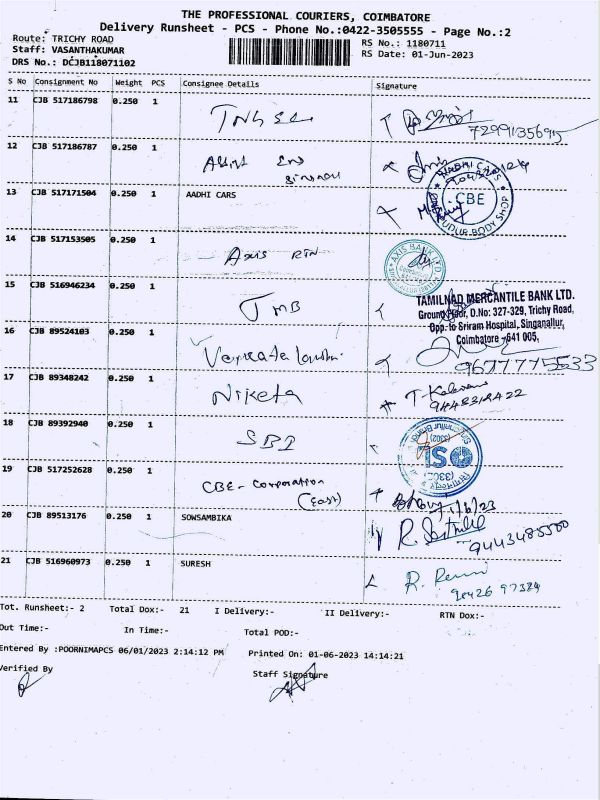 THE PROFESSIONAL COURIERS, COIMBATORE
Delivery Runsheet - PCS - Phone No.:0422-3505555 - Page No.:2
Route: TRICHY ROAD
RS No.: 1180711
Staff: VASANTHAKUMAR
RS Date: 01-Jun-2023
DRS No.: DCJB118071102
S No Consignment No Weight PCS Consignee Details Signature
11 CJB 517186798 0.250 1
12 CJB 517186787 0.250 1
13 CJB 517171504 0.250 1 AADHI CARS
CBE
BODY SHOP
14 CJB 517153505 0.250 1 Axis RTN
AXIS BANK LTD.
15 CJB 516946234 0.250 1 TMB
TAMILNAD MERCANTILE BANK LTD.
Ground Floor, D.No: 327-329, Trichy Road,
Opp. to Sriram Hospital, Singanallur,
Coimbatore - 641 005.
16 CJB 89524103 0.250 1
9677775533
17 CJB 89348242 0.250 1 Niketa
18 CJB 89392940 0.250 1 SBI
19 CJB 517252628 0.250 1 CBE - Corporation
(East)
1/6/23
20 CJB 89513176 0.250 1 SOWSAMBIKA
9443485500
21 CJB 516960973 0.250 1 SURESH
Tot. Runsheet:- 2 Total Dox:- 21 I Delivery:- II Delivery:- RTN Dox:-
Out Time:- In Time:- Total POD:-
Entered By :POORNIMAPCS 06/01/2023 2:14:12 PM Printed On: 01-06-2023 14:14:21
Verified By Staff Signature